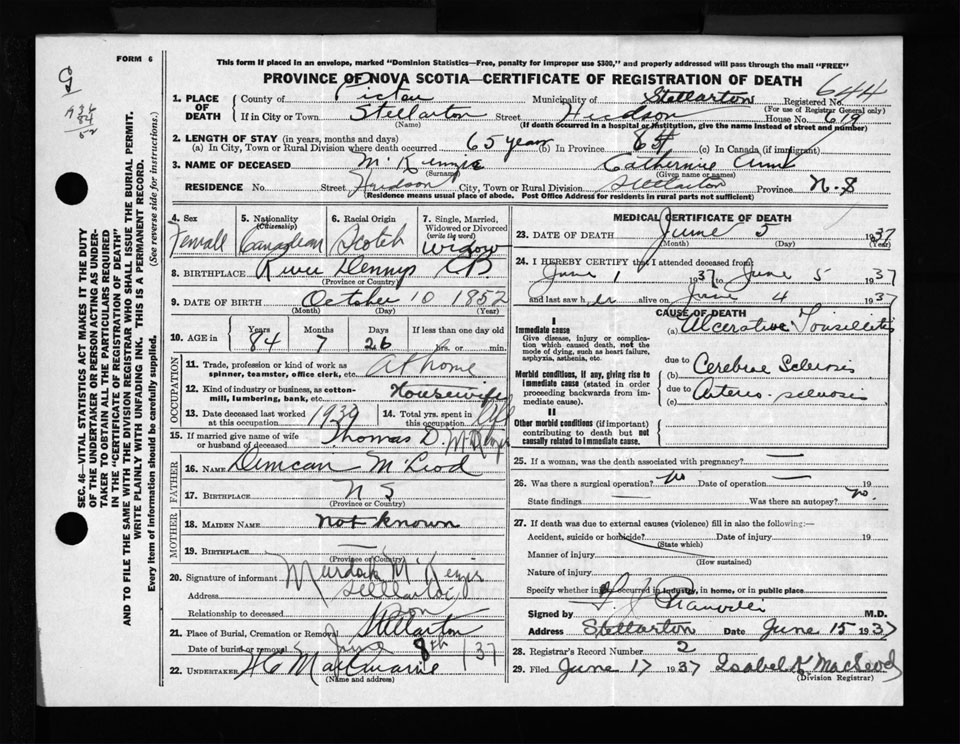 FORM 6
This form if placed in an envelope, marked "Dominion Statistics—Free, penalty for improper use $300," and properly addressed will pass through the mail "FREE"
PROVINCE OF NOVA SCOTIA—CERTIFICATE OF REGISTRATION OF DEATH
644
1. PLACE OF DEATH
County of Pictou Municipality of Stellarton Registered No.
(For use of Registrar General only)
If in City or Town Stellarton Street Hudson House No. 619
(Name) (If death occurred in a hospital or institution, give the name instead of street and number)
2. LENGTH OF STAY (in years, months and days)
(a) In City, Town or Rural Division where death occurred 65 years (b) In Province 84 (c) In Canada (if immigrant)
3. NAME OF DECEASED McKenzie Catherine Ann
(Surname) (Given name or names)
RESIDENCE No. Street Hudson City, Town or Rural Division Stellarton Province N.S
(Residence means usual place of abode. Post Office Address for residents in rural parts not sufficient)
4. Sex Female
5. Nationality (Citizenship) Canadian
6. Racial Origin Scotch
7. Single, Married, Widowed or Divorced (write the word) Widow
8. BIRTHPLACE River Dennys CB
(Province or Country)
9. DATE OF BIRTH October 10 1852
(Month) (Day) (Year)
10. AGE in Years 84 Months 7 Days 26 If less than one day old hrs. or min.
OCCUPATION
11. Trade, profession or kind of work as spinner, teamster, office clerk, etc. At home
12. Kind of industry or business, as cotton-mill, lumbering, bank, etc. Housewife
13. Date deceased last worked at this occupation 1930
14. Total yrs. spent in this occupation Life
15. If married give name of wife or husband of deceased Thomas D. McKenzie
FATHER
16. NAME Duncan McLeod
17. BIRTHPLACE N S
(Province or Country)
MOTHER
18. MAIDEN NAME Not known
19. BIRTHPLACE —
(Province or Country)
20. Signature of informant Murdock McKenzie
Address Stellarton
Relationship to deceased son
21. Place of Burial, Cremation or Removal Stellarton
Date of burial or removal June 8th 1937
22. UNDERTAKER
(Name and address)
MEDICAL CERTIFICATE OF DEATH
23. DATE OF DEATH June 5 1937
(Month) (Day) (Year)
24. I HEREBY CERTIFY that I attended deceased from
June 1 1937 to June 5 1937
and last saw her alive on June 4 1937
CAUSE OF DEATH
I
Immediate cause
Give disease, injury or complication which caused death, not the mode of dying, such as heart failure, asphyxia, asthenia, etc.
(a) Ulcerative Tonsillitis
due to
Morbid conditions, if any, giving rise to immediate cause (stated in order proceeding backwards from immediate cause).
(b) Cerebral Sclerosis
due to
(c) Arterio-sclerosis
II
Other morbid conditions (if important) contributing to death but not causally related to immediate cause.
25. If a woman, was the death associated with pregnancy? —
26. Was there a surgical operation? no Date of operation — 19
State findings — Was there an autopsy? no.
27. If death was due to external causes (violence) fill in also the following:—
Accident, suicide or homicide? Date of injury 19
(State which)
Manner of injury
(How sustained)
Nature of injury
Specify whether injury occurred in industry, in home, or in public place
Signed by M.D.
Address Stellarton Date June 15 1937
28. Registrar's Record Number 2
29. Filed June 17 1937 Isabel K. MacLeod
(Division Registrar)
SEC. 46—VITAL STATISTICS ACT MAKES IT THE DUTY
OF THE UNDERTAKER OR PERSON ACTING AS UNDER-
TAKER TO OBTAIN ALL THE PARTICULARS REQUIRED
IN THE "CERTIFICATE OF REGISTRATION OF DEATH"
AND TO FILE THE SAME WITH THE DIVISION REGISTRAR WHO SHALL ISSUE THE BURIAL PERMIT.
WRITE PLAINLY WITH UNFADING INK. THIS IS A PERMANENT RECORD.
Every item of information should be carefully supplied. (See reverse side for instructions.)